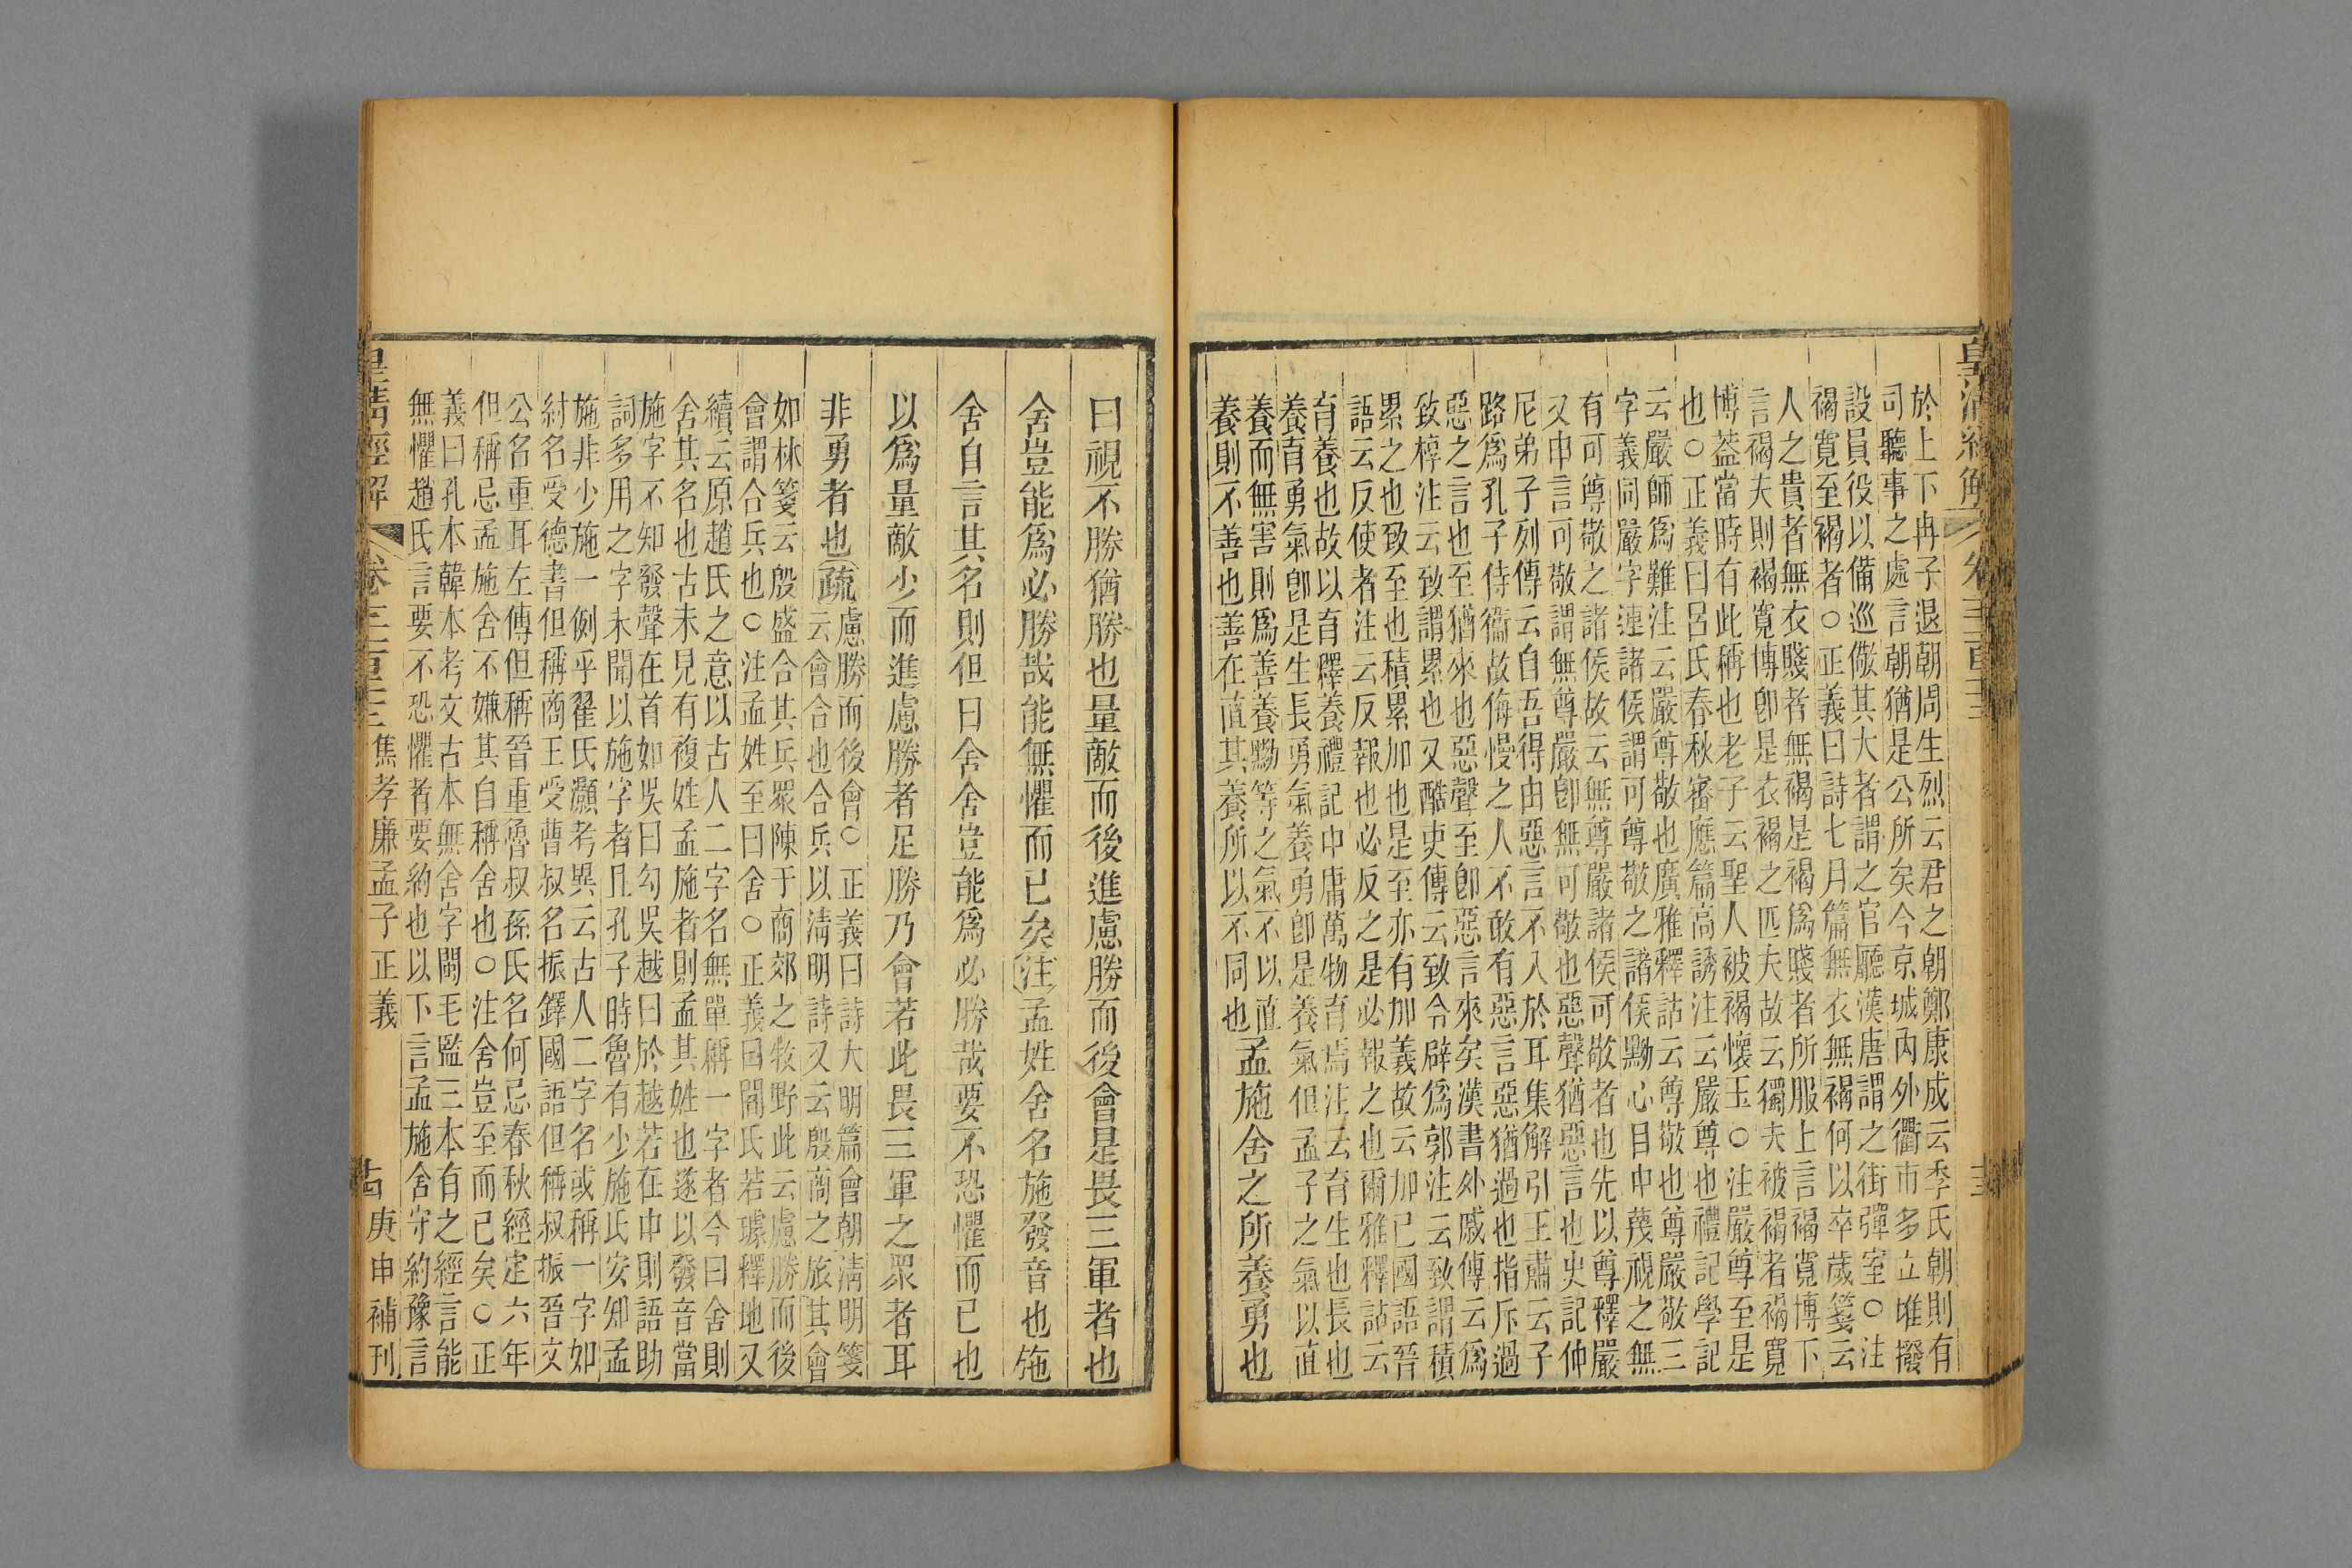 皇清經解
於上下冉子退朝周生烈云君之朝鄭康成云季氏朝則有
司聽事之處言朝猶是公所矣今京城內外衢市多立堆撥
設員役以備巡儆其大者謂之官廳漢唐謂之街彈室○注
褐寬至褐者○正義曰詩七月篇無衣無褐何以卒歲箋云
人之貴者無衣賤者無褐是褐爲賤者所服上言褐寬博下
言褐夫則褐寬博卽是衣褐之匹夫故云獨夫被褐者褐寬
博葢當時有此稱也老子云聖人被褐懷玉○注嚴尊至是
也○正義曰呂氏春秋審應篇高誘注云嚴尊也禮記學記
云嚴師爲難注云嚴尊敬也廣雅釋詁云尊敬也尊嚴敬三
字義同嚴字連諸侯謂可尊敬之諸侯黝心目中蔑視之無
有可尊敬之諸侯故云無尊嚴諸侯可敬者也先以尊釋嚴
又申言可敬謂無尊嚴卽無可敬也惡聲猶惡言也史記仲
尼弟子列傳云自吾得由惡言不入於耳集解引王肅云子
路爲孔子侍衞故侮慢之人不敢有惡言惡猶過也指斥過
惡之言也至猶來也惡聲至卽惡言來矣漢書外戚傳云爲
致椁注云致謂累也又酷吏傳云致令辟爲郭注云致謂積
累之也致至也積累加也是至亦有加義故云加已國語晉
語云反使者注云反報也必反之是必報之也爾雅釋詁云
育養也故以育釋養禮記中庸萬物育焉注云育生也長也
養育勇氣卽是生長勇氣養勇卽是養氣但孟子之氣以直
養而無害則爲善養黝等之氣不以直
養則不善也善在直其養所以不同也
孟施舍之所養勇也
曰視不勝猶勝也量敵而後進慮勝而後會是畏三軍者也
舍豈能爲必勝哉能無懼而已矣注孟姓舍名施發音也施
舍自言其名則但曰舍舍豈能爲必勝哉要不恐懼而已也
以爲量敵少而進慮勝者足勝乃會若此畏三軍之眾者耳
非勇者也疏
慮勝而後會○正義曰詩大明篇會朝清明箋
云會合也合兵以清明詩又云殷商之旅其會
如林箋云殷盛合其兵眾陳于商郊之牧野此云慮勝而後
會謂合兵也○注孟姓至曰舍○正義曰閻氏若璩釋地又
續云原趙氏之意以古人二字名無單稱一字者今曰舍則
舍其名也古未見有複姓孟施者則孟其姓也遂以發音當
施字不知發聲在首如吳曰勾吳越曰於越若在中則語助
詞多用之字未聞以施字者且孔子時魯有少施氏安知孟
施非少施一例乎翟氏灝考異云古人二字名或稱一字如
紂名受德書但稱商王受曹叔名振鐸國語但稱叔振晉文
公名重耳左傳但稱晉重魯叔孫氏名何忌春秋經定六年
但稱忌孟施舍不嫌其自稱舍也○注舍豈至而已矣○正
義曰孔本韓本考文古本無舍字閩毛監三本有之經言能
無懼趙氏言要不恐懼者要約也以下言孟施舍守約豫言
皇清經解
焦孝廉孟子正義
庚申補刊